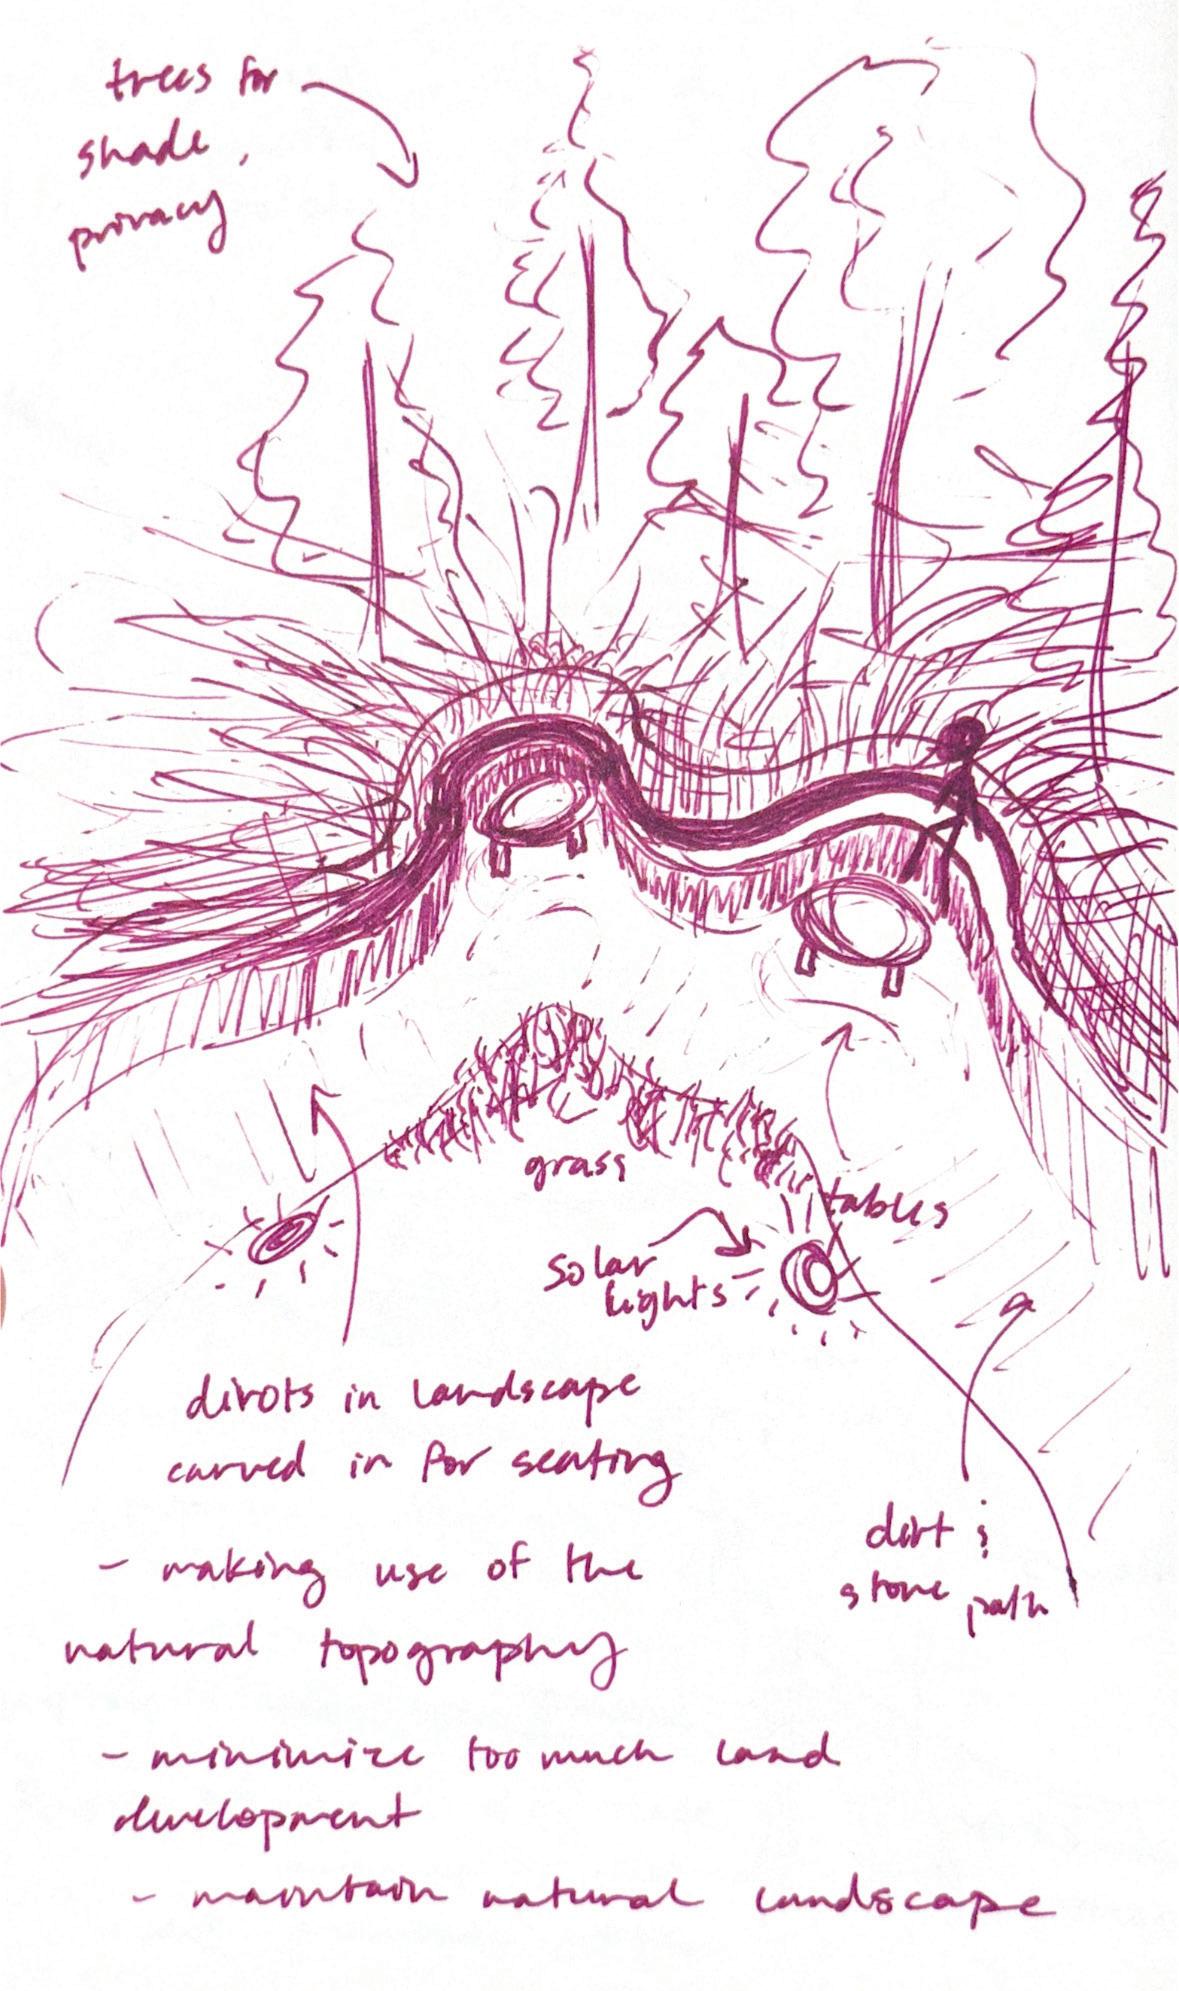 trees for
shade,
privacy
grass
tables
solar
lights
divots in landscape
carved in for seating
dirt &
stone path
- making use of the
natural topography
- minimize too much land
development
- maintain natural landscape